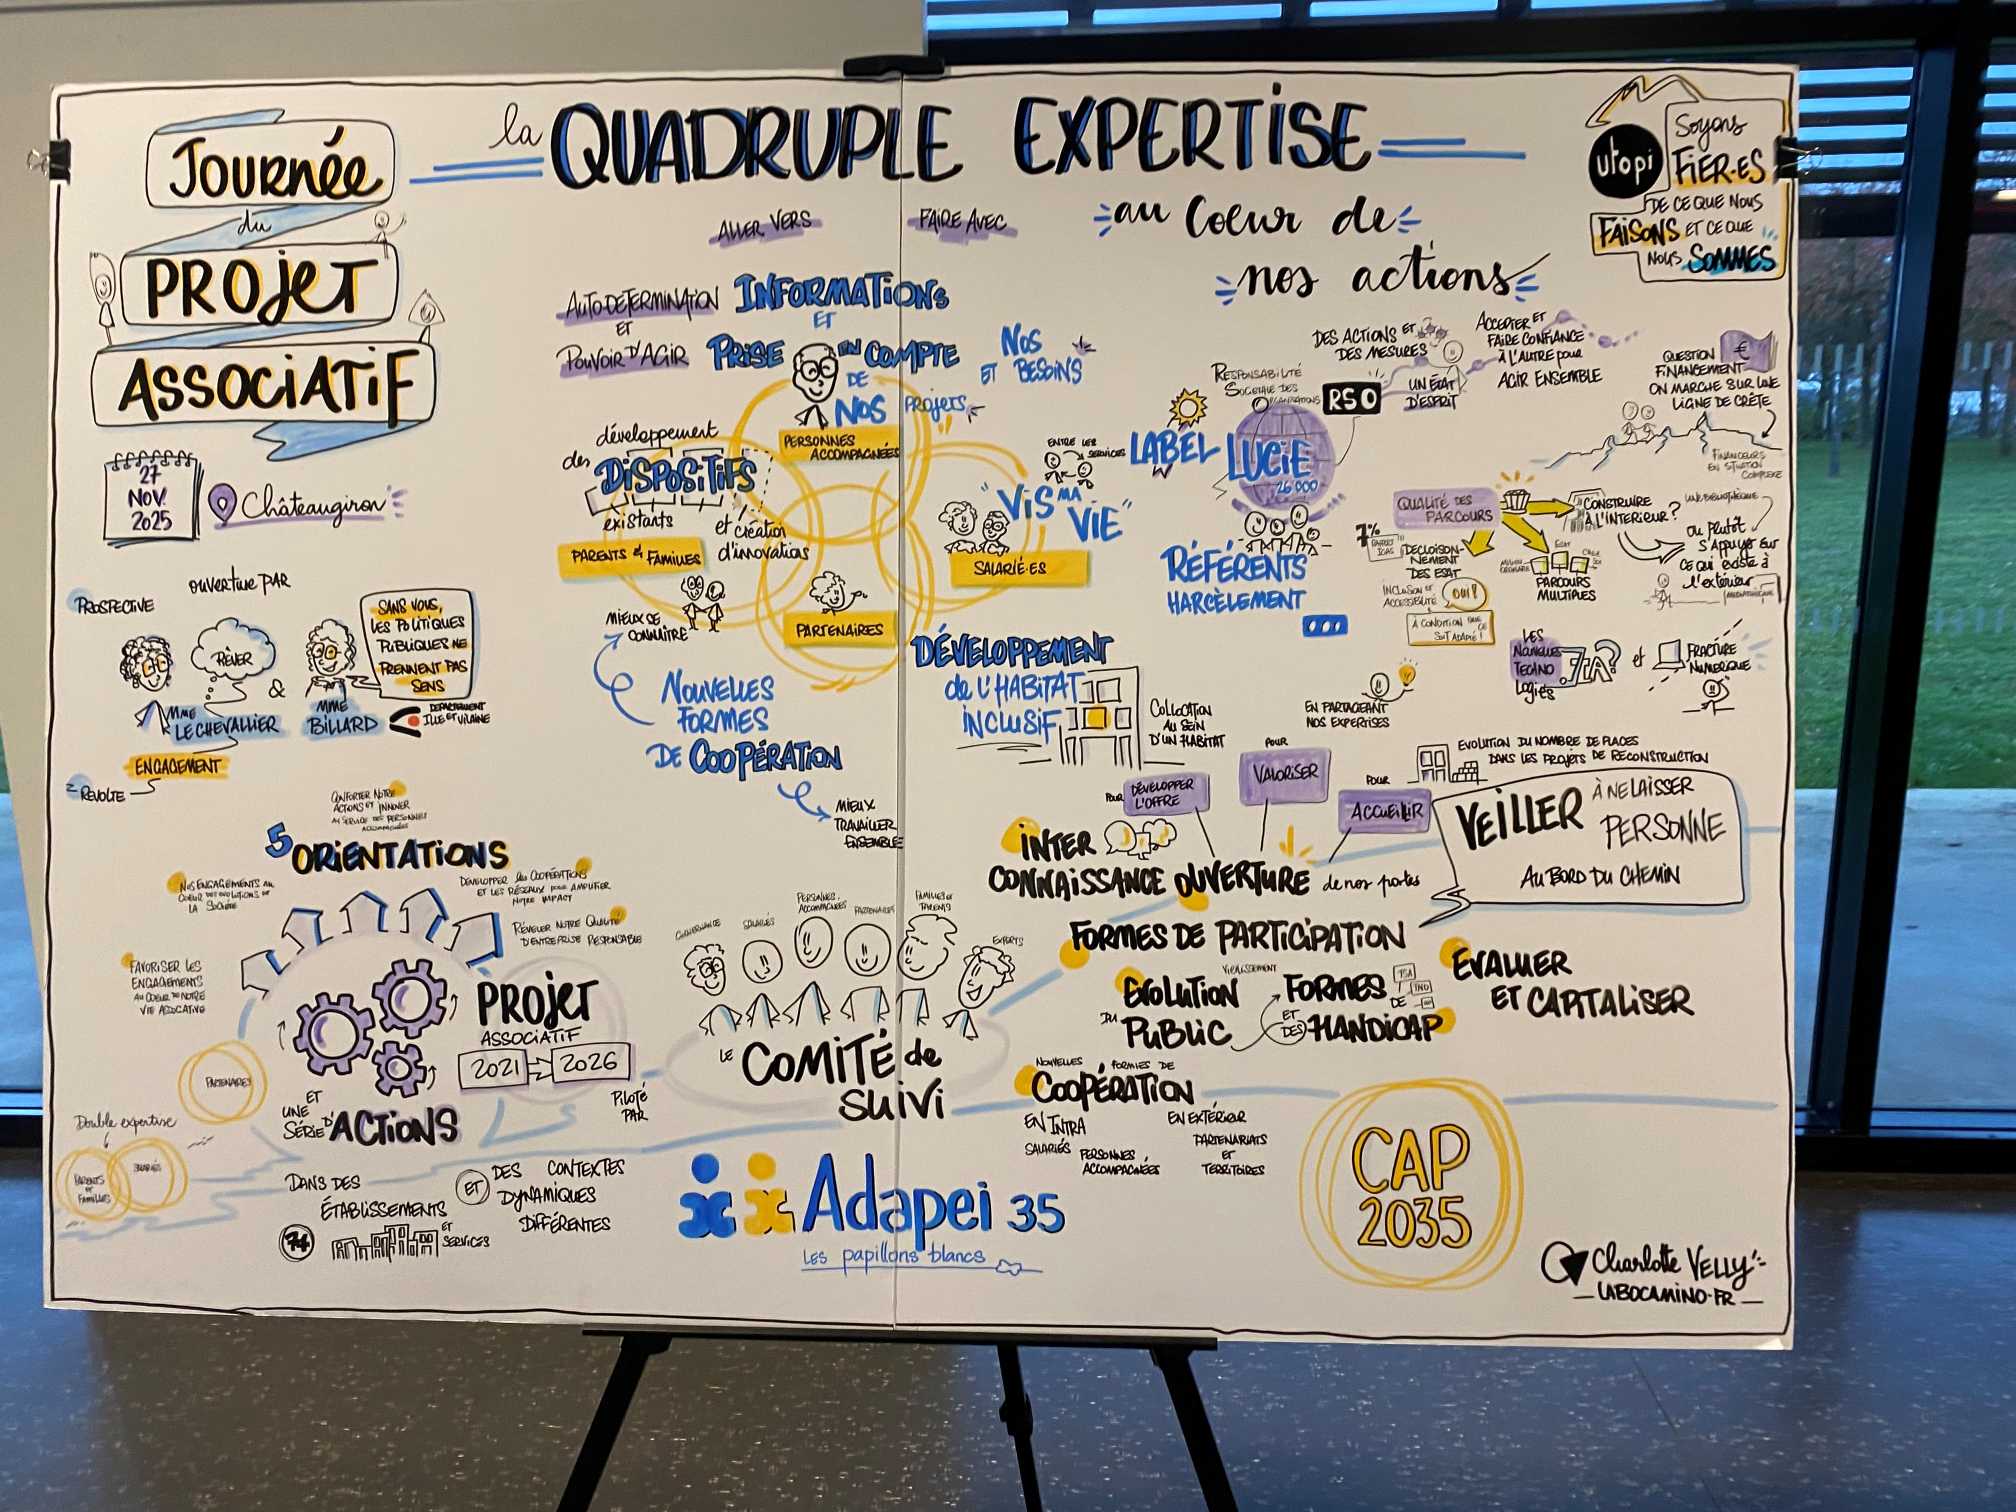 JOURNÉE
du
PROJET
ASSOCIATIF
27
NOV.
2025
Châteaugiron
la QUADRUPLE EXPERTISE
au coeur de
nos actions
utopi
Soyons
FIER·ES
DE CE QUE NOUS
FAISONS ET CE QUE
NOUS SOMMES
ouverture PAR
PROSPECTIVE
RÊVER
&
MME
LE CHEVALLIER
MME
BILLARD
SANS VOUS,
LES POLITIQUES
PUBLIQUES NE
PRENNENT PAS
SENS
DEPARTEMENT
ILLE ET VILAINE
ENGAGEMENT
REVOLTE
ALLER VERS
FAIRE AVEC
AUTO-DETERMINATION
ET
POUVOIR D'AGIR
INFORMATIONS
ET
PRISE EN COMPTE
DE
NOS PROJETS
NOS
ET BESOINS
PERSONNES
ACCOMPAGNÉES
développement
des DISPOSITIFS
existants
et création
d'innovations
PARENTS & FAMILLES
MIEUX SE
CONNAÎTRE
PARTENAIRES
NOUVELLES
FORMES
DE COOPÉRATION
MIEUX
TRAVAILLER
ENSEMBLE
ENTRE LES
SERVICES
"VIS MA
VIE"
SALARIÉ·ES
DÉVELOPPEMENT
de L'HABITAT
INCLUSIF
COLLOCATION
AU SEIN
D'UN HABITAT
LABEL LUCIE
26 000
RÉFÉRENTS
HARCÈLEMENT
RESPONSABILITÉ
SOCIETALE DES
ORGANISATIONS
RSO
DES ACTIONS ET
DES MESURES
UN ÉTAT
D'ESPRIT
ACCEPTER ET
FAIRE CONFIANCE
À L'AUTRE POUR
AGIR ENSEMBLE
QUESTION
FINANCEMENT
€
ON MARCHE SUR UNE
LIGNE DE CRÊTE
FINANCEURS
EN SITUATION
COMPLEXE
QUALITÉ DES
PARCOURS
7%
DECLOISON-
NEMENT
DES ESAT
INCLUSION ET
ACCESSIBILITÉ
OUI!
À CONDITION QUE CE
SOIT ADAPTÉ!
ESAT
PARCOURS
MULTIPLES
CONSTRUIRE
À L'INTERIEUR?
UNE BIBLIOTHÈQUE
OU PLUTÔT
S'APPUYER SUR
CE QUI EXISTE À
L'EXTÉRIEUR
MEDIATHEQUE
LES
NOUVELLES
TECHNO
LOGIES
IA?
ET
FRACTURE
NUMERIQUE
EN PARTAGEANT
NOS EXPERTISES
POUR
DÉVELOPPER
L'OFFRE
POUR
VALORISER
POUR
ACCUEILLIR
EVOLUTION DU NOMBRE DE PLACES
DANS LES PROJETS DE RECONSTRUCTION
VEILLER À NE LAISSER
PERSONNE
AU BORD DU CHEMIN
INTER
CONNAISSANCE OUVERTURE de nos portes
FORMES DE PARTICIPATION
EVOLUTION
DU PUBLIC
VIEILLISSEMENT
ET DES
FORMES DE
HANDICAP
TSA
TND
EVALUER
ET CAPITALISER
NOUVELLES FORMES DE
COOPÉRATION
EN INTRA
SALARIÉS
PERSONNES
ACCOMPAGNÉES
EN EXTÉRIEUR
PARTENARIATS
ET
TERRITOIRES
CONFORTER NOTRE
ACTIONS ET INNOVER
AU SERVICE DES PERSONNES
ACCOMPAGNÉES
5 ORIENTATIONS
NOS ENGAGEMENTS AU
COEUR DES EVOLUTIONS DE
LA SOCIÉTÉ
DÉVELOPPER les COOPÉRATIONS
ET LES RÉSEAUX POUR AMPLIFIER
NOTRE IMPACT
RÉVELER NOTRE QUALITÉ
D'ENTREPRISE RESPONSABLE
FAVORISER LES
ENGAGEMENTS
AU COEUR DE NOTRE
VIE ASSOCIATIVE
PROJET
ASSOCIATIF
2021
2026
PILOTÉ
PAR
PARTENAIRES
Double expertise
PARENTS
ET
FAMILLES
SALARIÉS
ET
UNE
SÉRIE D'ACTIONS
DANS DES
ÉTABLISSEMENTS
ET
SERVICES
74
ET
DES CONTEXTES
DYNAMIQUES
DIFFÉRENTES
GOUVERNANCE
SALARIÉS
PERSONNES
ACCOMPAGNÉES
PARTENAIRES
FAMILLES ET
PARENTS
EXPERTS
LE COMITÉ de
SUIVI
Adapei 35
LES papillons blancs
CAP
2035
Charlotte VELLY
LABOCAMINO.FR